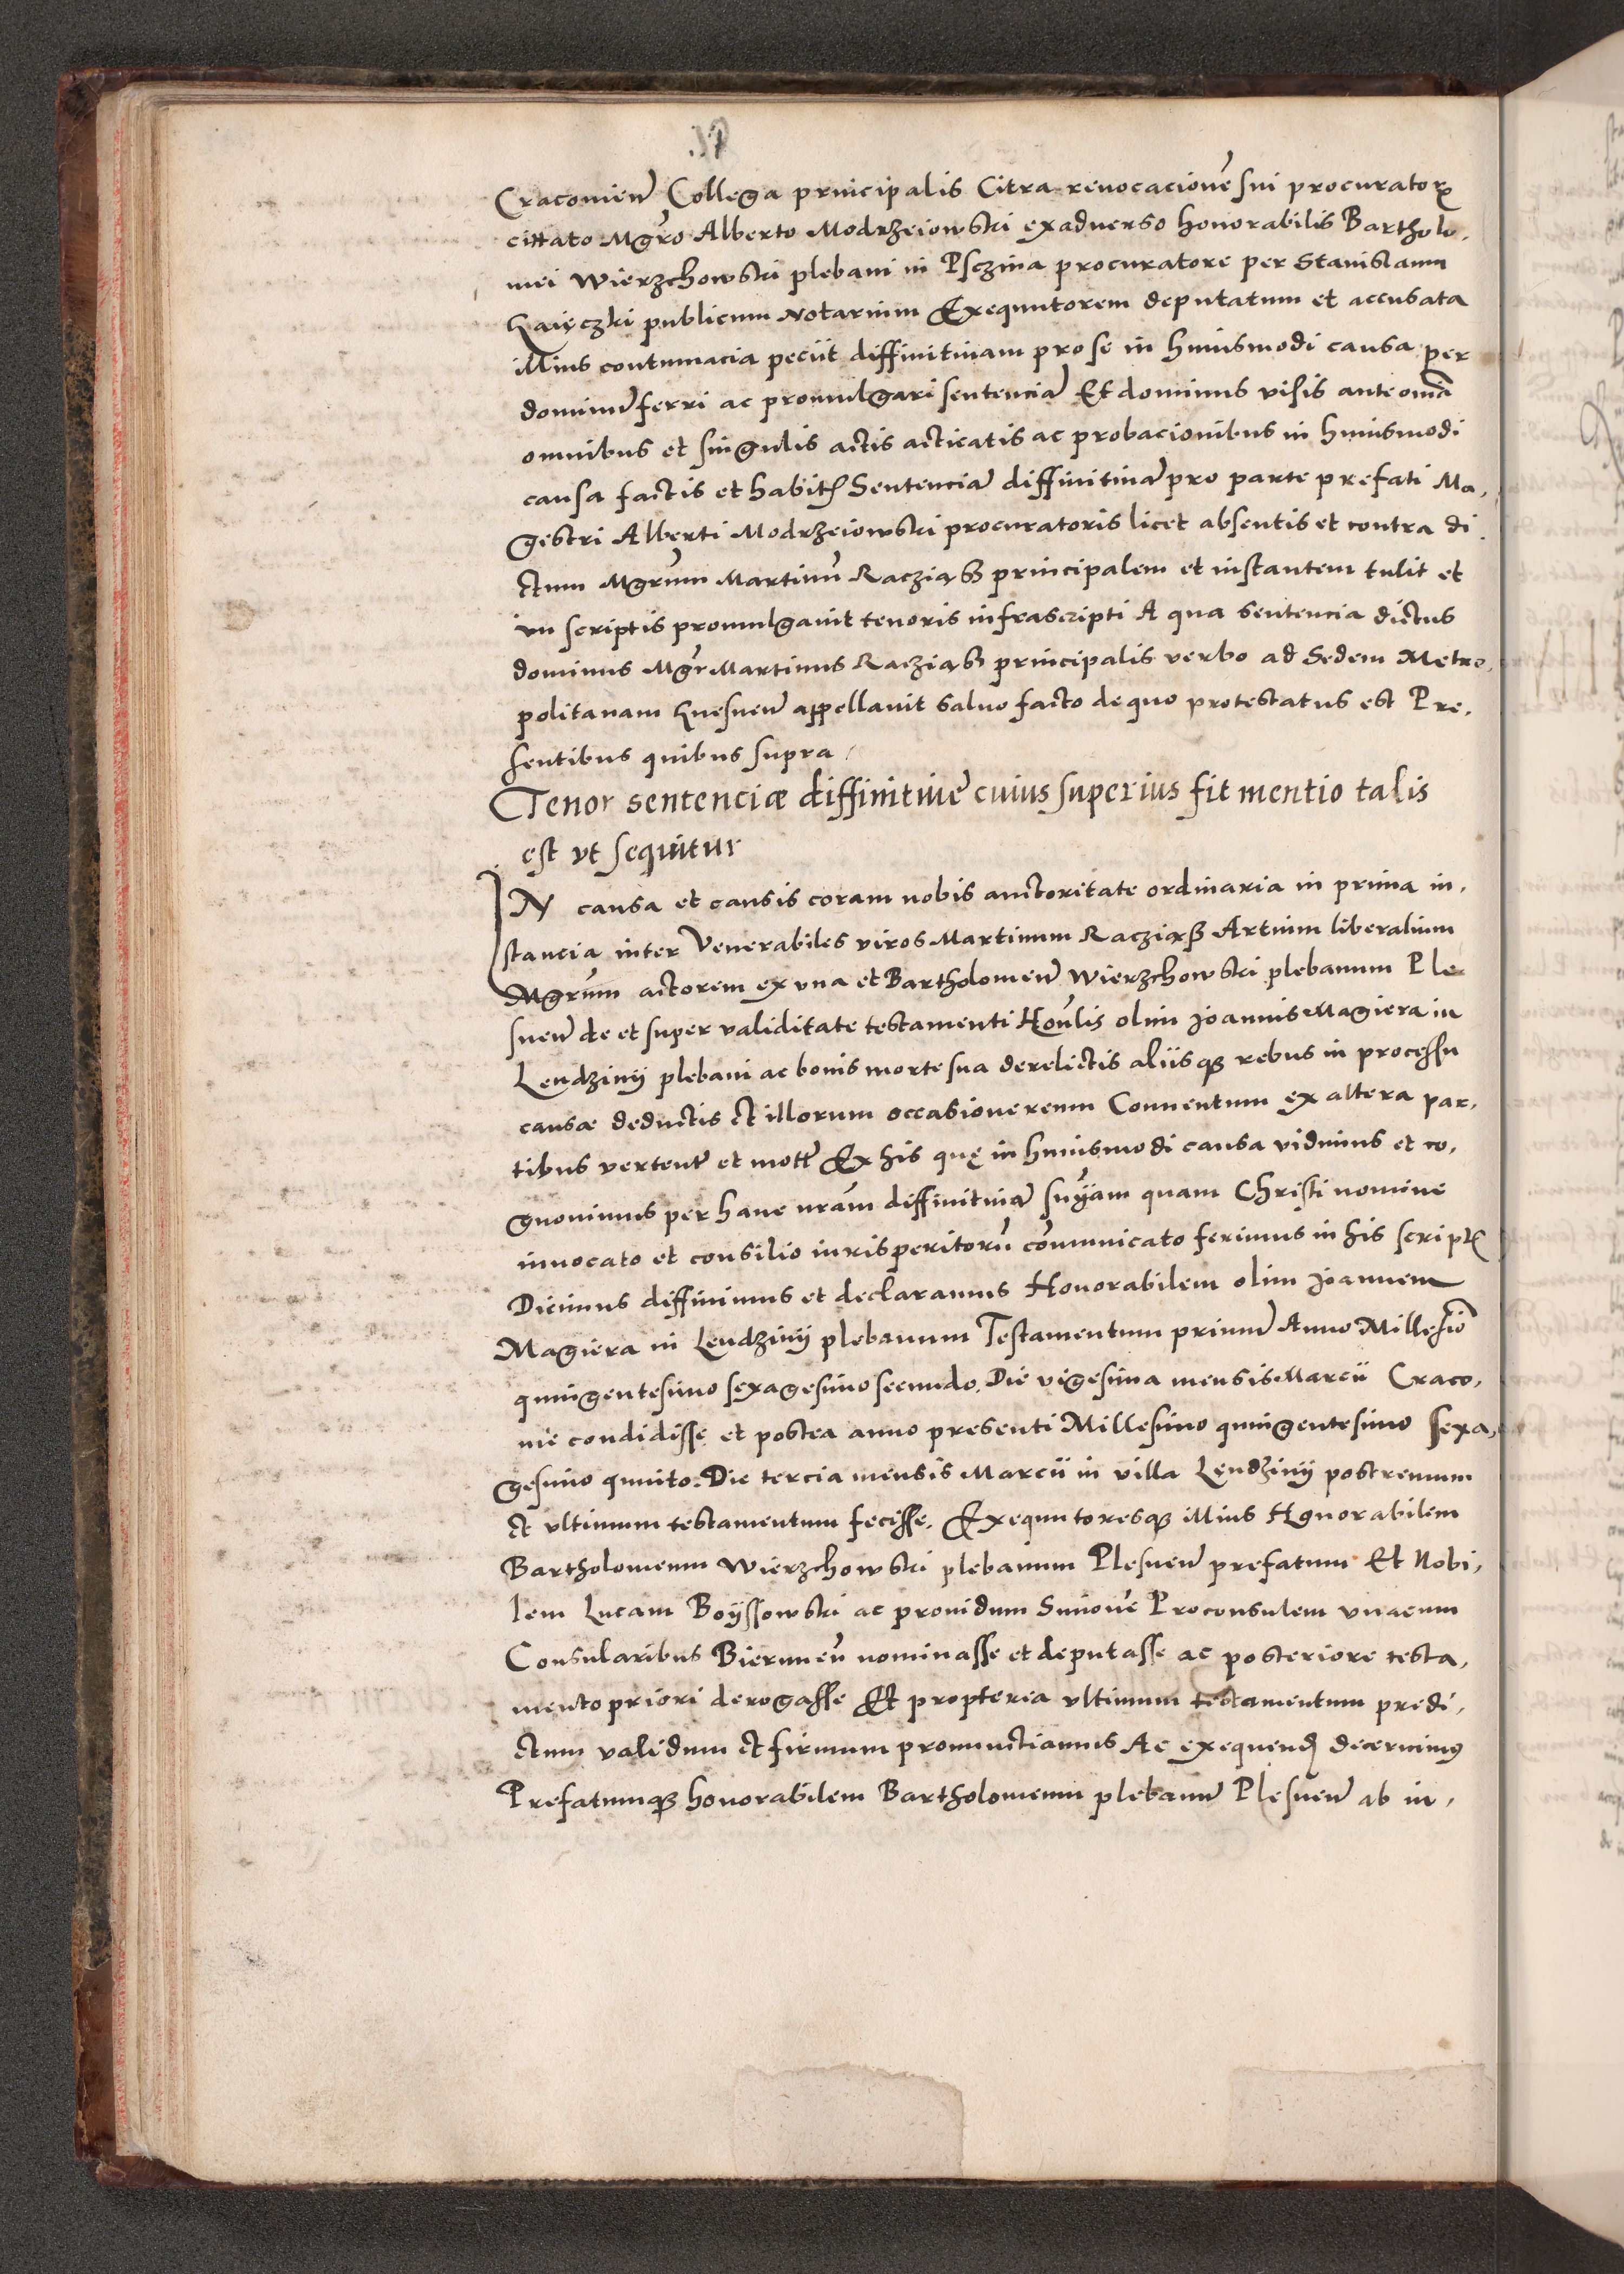 Cracovień Collega principalis Citra revocacionē sui procurator
cittato Mgr̄o Alberto Modrzeiowski exadverso honorabilis Bartholo,
mei Wierzchowski plebani in Psczina procuratore per Stanislaum
Gaięczki publicum Notarium Exequutorem deputatum et accusata
illius contumacia peciit diffinitivam pro se in huiusmodi causa per
dominū ferri ac promulgari sentenciā Et dominus visis ante om̄ia
omnibus et singulis actis acticatis ac probacionibus in huiusmodi
causa factis et habit Sentenciā diffinitivā pro parte prefati Ma,
gestri Alberti Modrzeiowski procuratoris licet absentis et contra di
ctum Mgr̄um Martinū Racziąß principalem et instantem tulit et
in scriptis promulgavit tenoris infrascripti A qua sentencia dictus
dominus Mgr̄ Martinus Racziąß principalis verbo ad Sedem Metro,
politanam Gnesneń appellavit salvo facto de quo protestatus est Pre,
sentibus quibus supra /
Tenor sentenciæ diffinitivē cuius superius fit mentio talis
est vt sequitur
IN causa et causis coram nobis auctoritate ordinaria in prima in,
stancia inter Venerabiles viros Martinum Racziąß Artium liberalium
Mgr̄um actorem ex vna et Bartholomeū Wierzchowski plebanum Ple
sneń de et super validitate testamenti Hon̄lis olim Joannis Magiera in
Lendzinÿ plebani ac bonis morte sua derelictis aliisq̨ rebus in processu
causæ deductis et illorum occasione reum Conventum ex altera par,
tibus verteñt et mott Ex his quę in huiusmodi causa vidimus et co,
gnovimus per hanc nr̄am diffinitivā sn̄iam quam Christi nomine
invocato et consilio iurisperitorū cōmunicato ferimus in his script
Dicimus diffinimus et declaramus Honorabilem olim Joannem
Magiera in Lendzinÿ plebanum Testamentum primū Anno Millesiō
quingentesimo sexagesimo secundo. Die vigesima mensis Marcii Craco,
nie condidisse et postea anno presenti Millesimo quingentesimo sexa,
gesimo quinto. Die tercia mensis Marcii in villa Lendzinÿ postremum
et vltimum testamentum fecisse. Exequutoresq̨ illius Honorabilem
Bartholomeum Wierzchowski plebanum Plesneń prefatum Et Nobi,
lem Lucam Boÿssowski ac providum Simonē Proconsulem vnacum
Consularibus Bierunēn nominasse et deputasse ac posteriore testa,
mento priori derogasse Et propterea vltimum testamentum predi,
ctum validum et firmum pronunctiamus Ac exequend decernimꝰ
Prefatumq̨ honorabilem Bartholomeum plebanū Plesneń ab in,